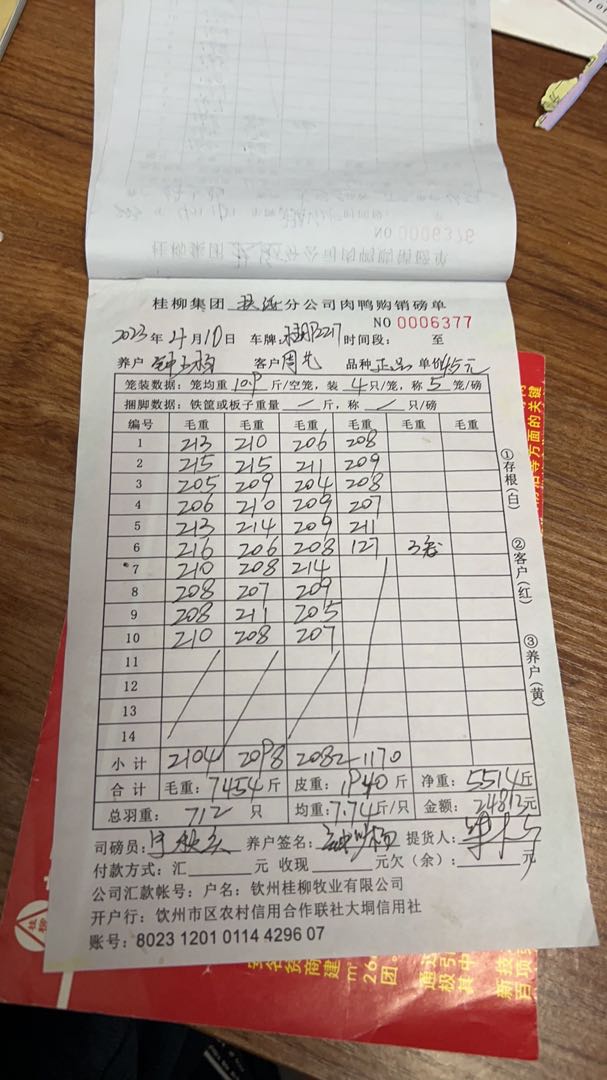 NO 0006376
桂柳集团 分公司肉鸭购销磅单
NO 0006377
2023年4月10日 车牌: 时间段: 至
养户 客户 周先 品种 正品 单价 45元
笼装数据:笼均重 10.9 斤/空笼,装 4 只/笼,称 5 笼/磅
捆脚数据:铁筐或板子重量 / 斤,称 / 只/磅
编号 毛重 毛重 毛重 毛重 毛重 毛重
1 213 210 206 208
2 215 215 211 209
3 205 209 204 208
4 206 210 209 207
5 213 214 209 211
6 216 206 208 127 3笼
7 210 208 214
8 208 207 209
9 208 211 205
10 210 208 207
11
12
13
14
小计 2104 2098 2082 1170
合计 毛重:7454斤 皮重:1940斤 净重:5514斤
总羽重: 712 只 均重:7.74斤/只 金额:24813元
司磅员: 养户签名: 提货人:
付款方式:汇 元 收现 元欠(余): 元
公司汇款帐号:户名:钦州桂柳牧业有限公司
开户行:钦州市区农村信用合作联社大垌信用社
账号:8023 1201 0114 4296 07
①存根(白)
②客户(红)
③养户(黄)